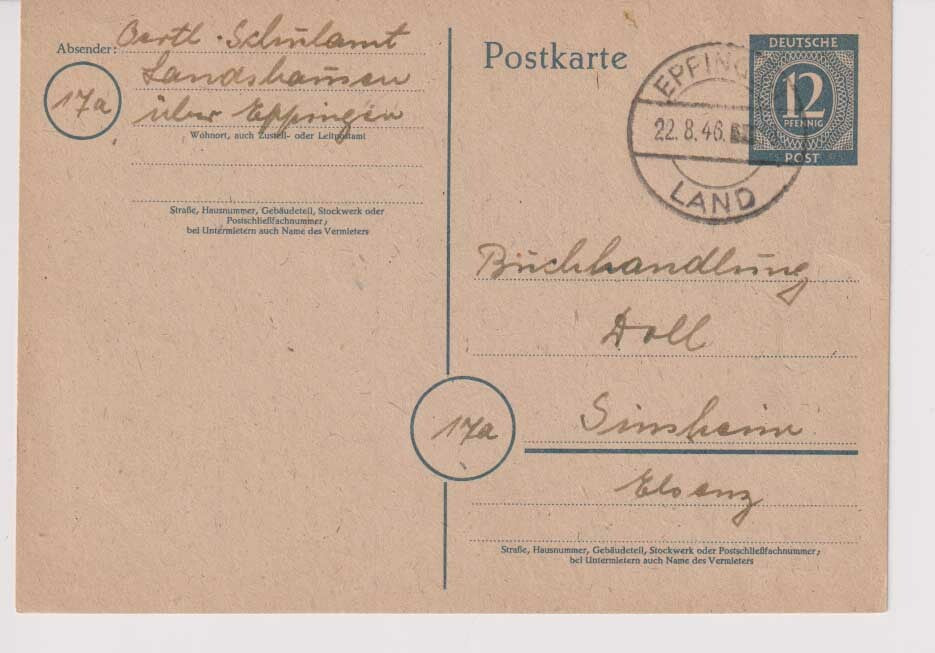 Absender: Oertl. Schulamt
17a
Landshausen
über Eppingen
Wohnort, auch Zustell- oder Leitpostamt
Straße, Hausnummer, Gebäudeteil, Stockwerk oder
Postschließfachnummer;
bei Untermietern auch Name des Vermieters
Postkarte
DEUTSCHE
12
PFENNIG
POST
22.8.46.
LAND
Buchhandlung
Doll
17a
Sinsheim
Elsenz
Straße, Hausnummer, Gebäudeteil, Stockwerk oder Postschließfachnummer;
bei Untermietern auch Name des Vermieters